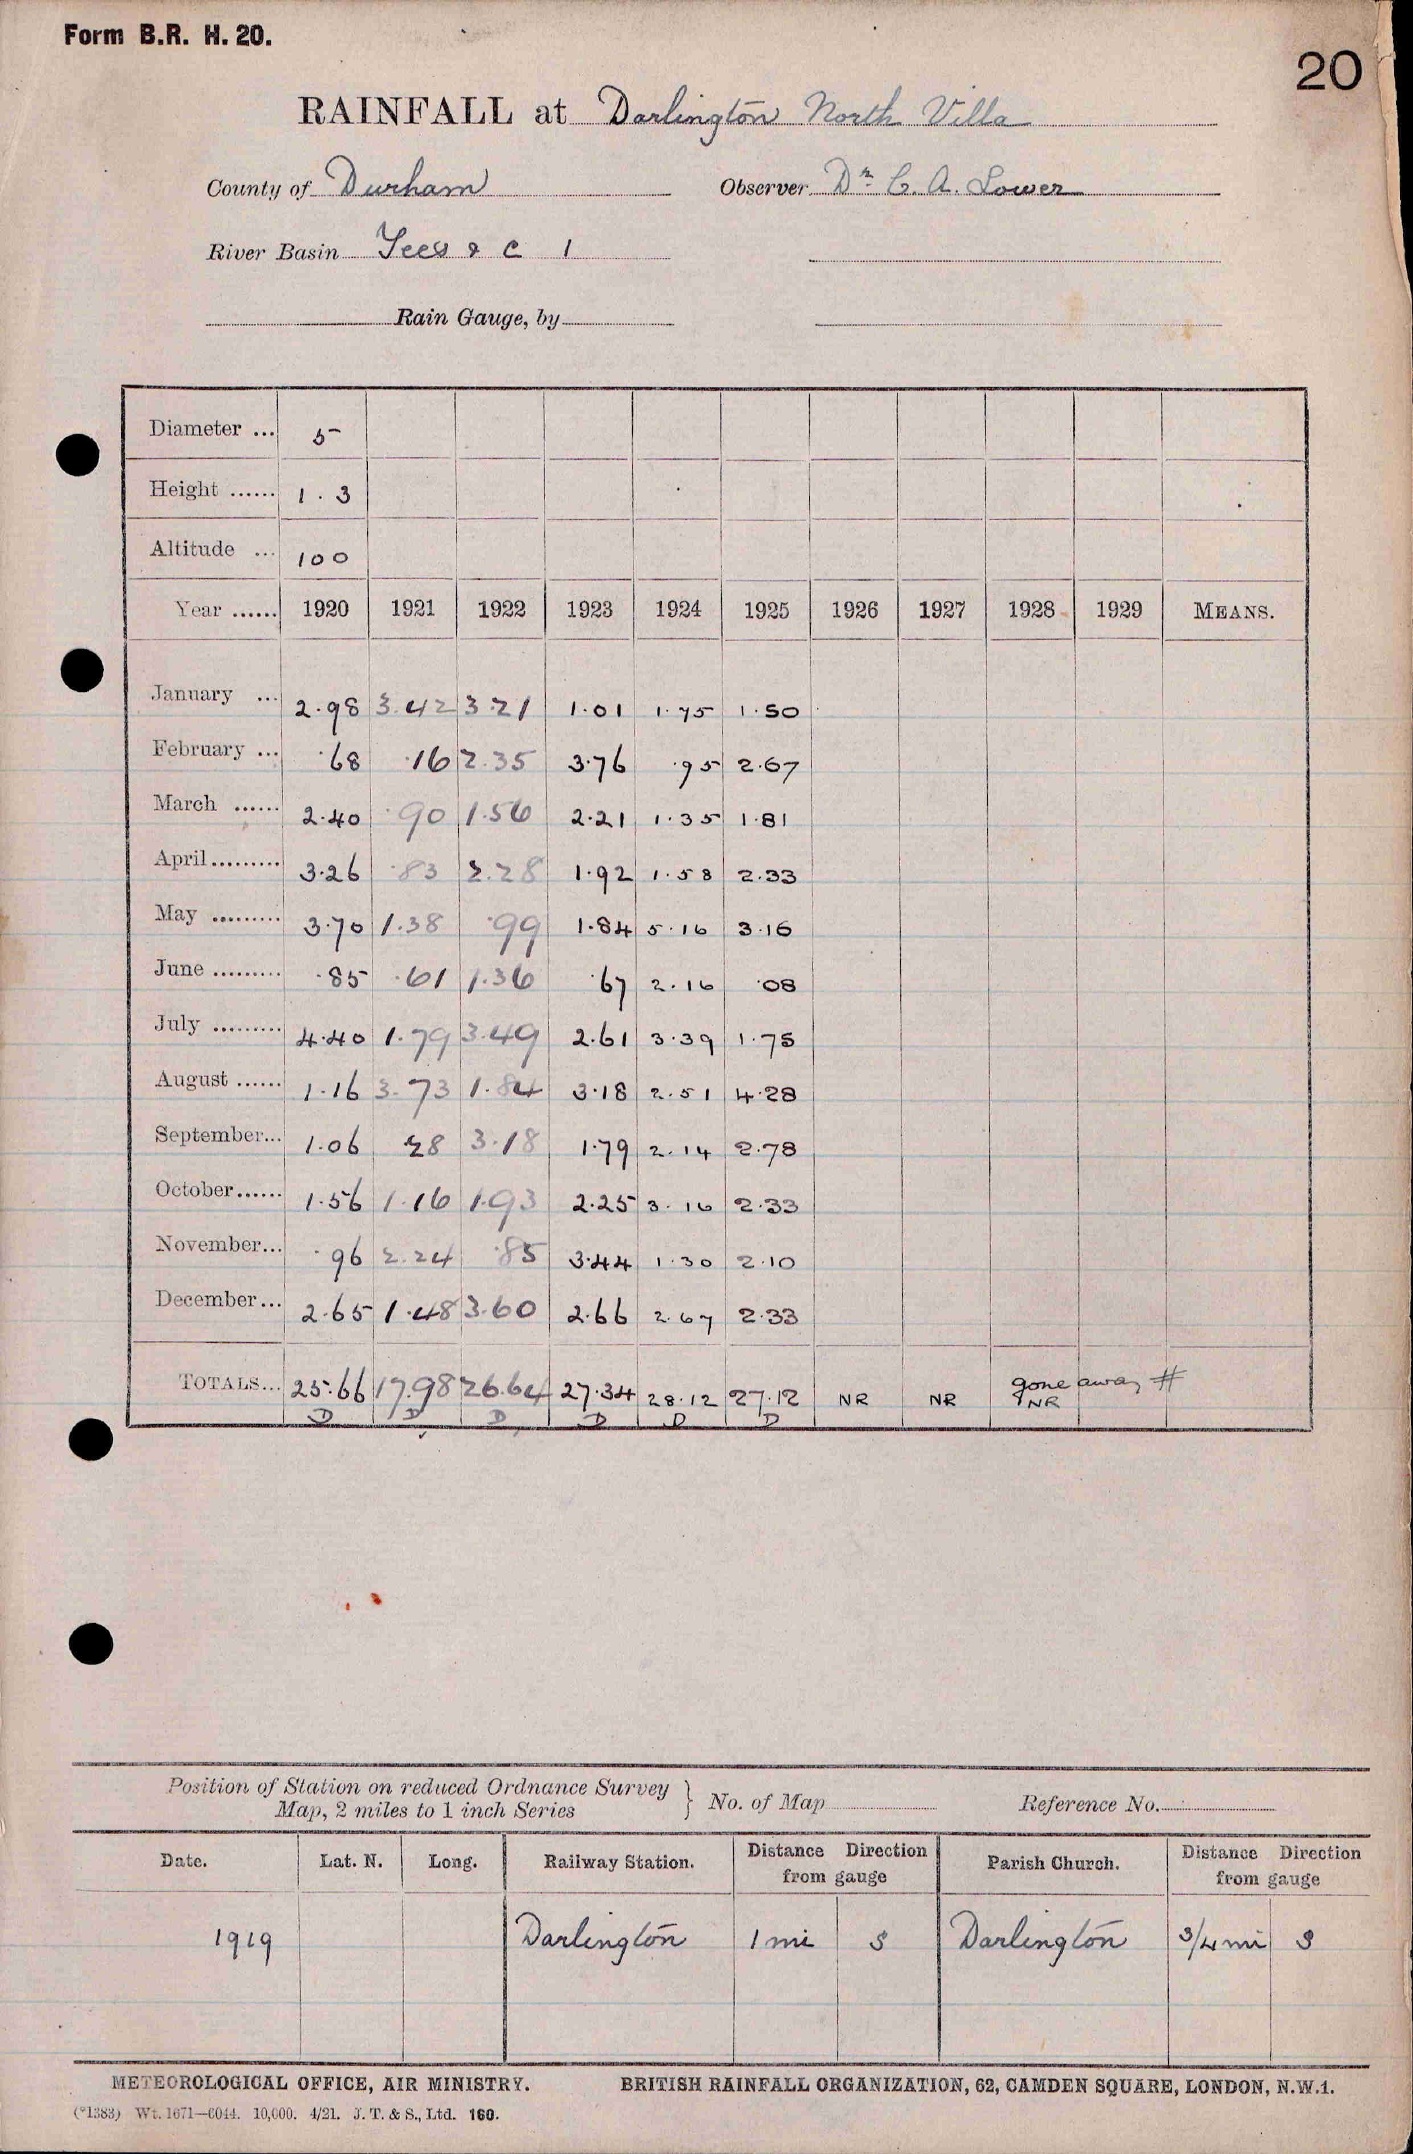 Form B.R. H. 20.
20
RAINFALL at Darlington North Villa
County of Durham Observer Dr C. A. Lower
River Basin Tees & C 1
Rain Gauge, by
Diameter ... 5
Height ...... 1.3
Altitude ... 100
Year ...... 1920 1921 1922 1923 1924 1925 1926 1927 1928 1929 MEANS.
January ... 2.98 3.42 3.21 1.01 1.75 1.50
February ... .68 .16 2.35 3.76 .95 2.67
March ...... 2.40 .90 1.56 2.21 1.35 1.81
April ......... 3.26 .83 2.28 1.92 1.58 2.33
May ......... 3.70 1.38 .99 1.84 5.16 3.16
June ......... .85 .61 1.36 .67 2.16 .08
July ......... 4.40 1.79 3.49 2.61 3.39 1.75
August ...... 1.16 3.73 1.84 3.18 2.51 4.28
September... 1.06 .28 3.18 1.79 2.14 2.78
October...... 1.56 1.16 1.93 2.25 3.16 2.33
November... .96 2.24 .85 3.44 1.30 2.10
December... 2.65 1.48 3.60 2.66 2.67 2.33
TOTALS... 25.66 17.98 26.64 27.34 28.12 27.12 NR NR gone away #
D D D D D D NR
Position of Station on reduced Ordnance Survey
Map, 2 miles to 1 inch Series } No. of Map Reference No.
Date. Lat. N. Long. Railway Station. Distance Direction from gauge Parish Church. Distance Direction from gauge
1919 Darlington 1 mi S Darlington 3/4 mi S
METEOROLOGICAL OFFICE, AIR MINISTRY. BRITISH RAINFALL ORGANIZATION, 62, CAMDEN SQUARE, LONDON, N.W.1.
(*1383) Wt. 1671—6044. 10,000. 4/21. J. T. & S., Ltd. 160.